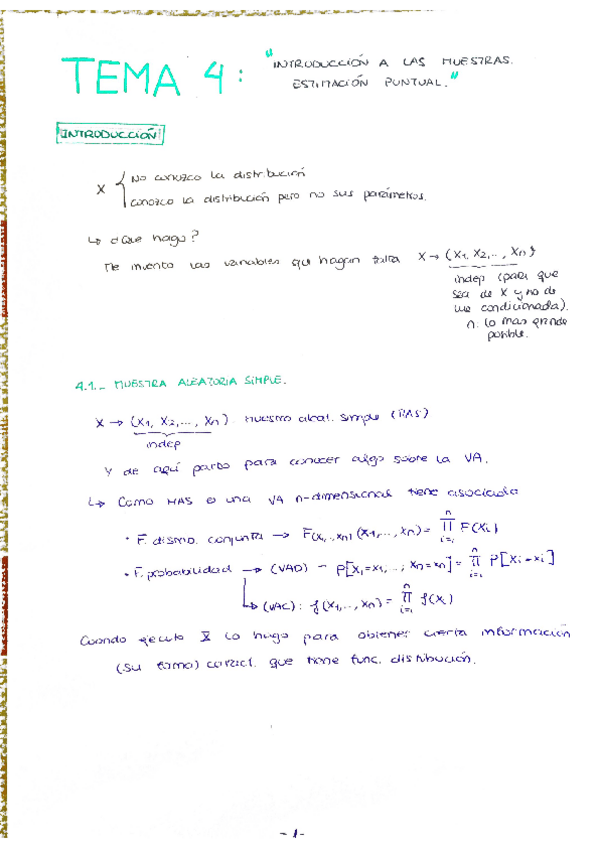 TEMA 4: "INTRODUCCIÓN A LAS MUESTRAS.
ESTIMACIÓN PUNTUAL."
INTRODUCCIÓN
X { No conozco la distribución
conozco la distribución pero no sus parámetros.
↳ ¿Que hago?
Me invento las variables que hagan falta X → (X1, X2,..., Xn)
indep (para que
sea de X y no de
una condicionada).
n: lo mas grande
posible.
4.1._ MUESTRA ALEATORIA SIMPLE.
X → (X1, X2,..., Xn). muestra aleat. simple (MAS)
indep
Y de aquí parto para conocer algo sobre la VA.
↳ Como MAS es una VA n-dimensional tiene asociada
• F. conjunta → F(X1,..,Xn) (X1,..., Xn) = ∏ᵢ₌₁ⁿ F(Xi)
• F. probabilidad → (VAD) - P[X1=x1, ..., Xn=xn] = ∏ᵢ₌₁ⁿ P[Xi=xi]
↳ (VAC): f(X1,..., Xn) = ∏ᵢ₌₁ⁿ f(Xi)
Cuando ejecuto X lo hago para obtener cierta información
(su forma) caract. que tiene func. distribución.
- 1 -